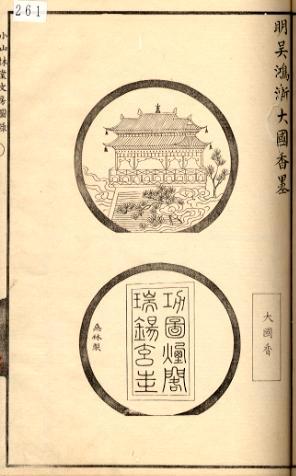 261
明吳鴻漸大國香墨
大國香
功圖煙閣
瑞錫玄圭
小山林堂文房圖錄